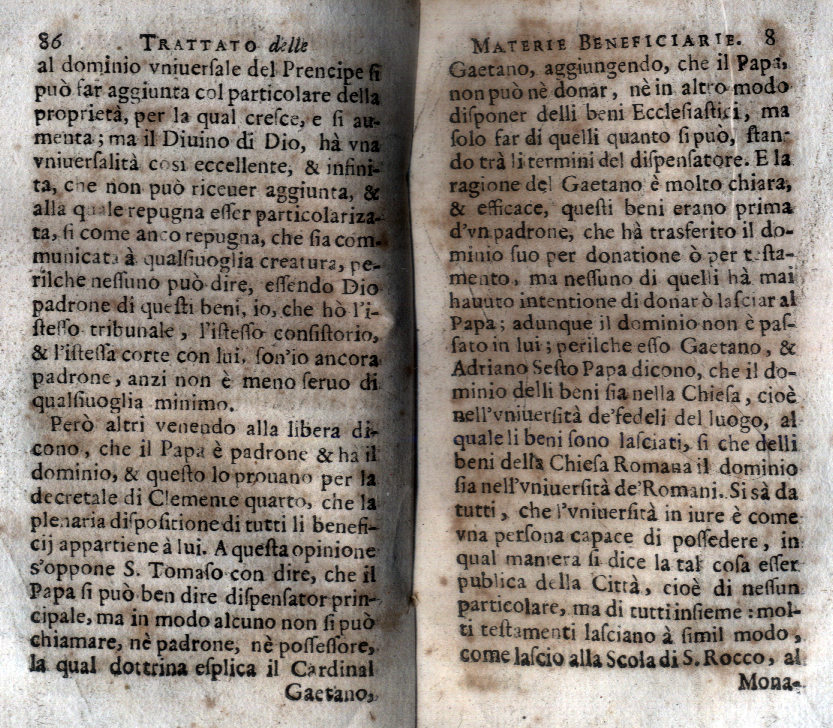 86 TRATTATO delle
al dominio vniuerſale del Prencipe ſi
può far aggiunta col particolare della
proprietà, per la qual creſce, e ſi au-
menta; ma il Diuino di Dio, hà vna
vniuerſalità così eccellente, & infini-
ta, che non può riceuer aggiunta, &
alla quale repugna eſſer particolariza-
ta, ſi come anco repugna, che ſia com-
municata à qualſiuoglia creatura, pe-
rilche neſſuno può dire, eſſendo Dio
padrone di queſti beni, io, che hò l'i-
ſteſſo tribunale, l'iſteſſo conſiſtorio,
& l'iſteſſa corte con lui, ſon'io ancora
padrone, anzi non è meno ſeruo di
qualſiuoglia minimo.
Però altri venendo alla libera di-
cono, che il Papa è padrone & ha il
dominio, & queſto lo prouano per la
decretale di Clemente quarto, che la
plenaria diſpoſitione di tutti li benefi-
cij appartiene à lui. A queſta opinione
s'oppone S. Tomaſo con dire, che il
Papa ſi può ben dire diſpenſator prin-
cipale, ma in modo alcuno non ſi può
chiamare, nè padrone, nè poſſeſſore,
la qual dottrina eſplica il Cardinal
Gaetano,
MATERIE BENEFICIARIE. 8
Gaetano, aggiungendo, che il Papa,
non può nè donar, nè in altro modo
diſponer delli beni Eccleſiaſtici, ma
ſolo far di quelli quanto ſi può, ſtan-
do trà li termini del diſpenſatore. E la
ragione del Gaetano è molto chiara,
& efficace, queſti beni erano prima
d'vn padrone, che hà trasferito il do-
minio ſuo per donatione ò per teſta-
mento, ma neſſuno di quelli hà mai
hauuto intentione di donar ò laſciar al
Papa; adunque il dominio non è paſ-
ſato in lui; perilche eſſo Gaetano, &
Adriano Seſto Papa dicono, che il do-
minio delli beni ſia nella Chieſa, cioè
nell'vniuerſità de'fedeli del luogo, al
quale li beni ſono laſciati, ſi che delli
beni della Chieſa Romana il dominio
ſia nell'vniuerſità de'Romani. Si sà da
tutti, che l'vniuerſità in iure è come
vna perſona capace di poſſedere, in
qual maniera ſi dice la tal coſa eſſer
publica della Città, cioè di neſſun
particolare, ma di tutti inſieme: mol-
ti teſtamenti laſciano à ſimil modo,
come laſcio alla Scola di S. Rocco, al
Mona-